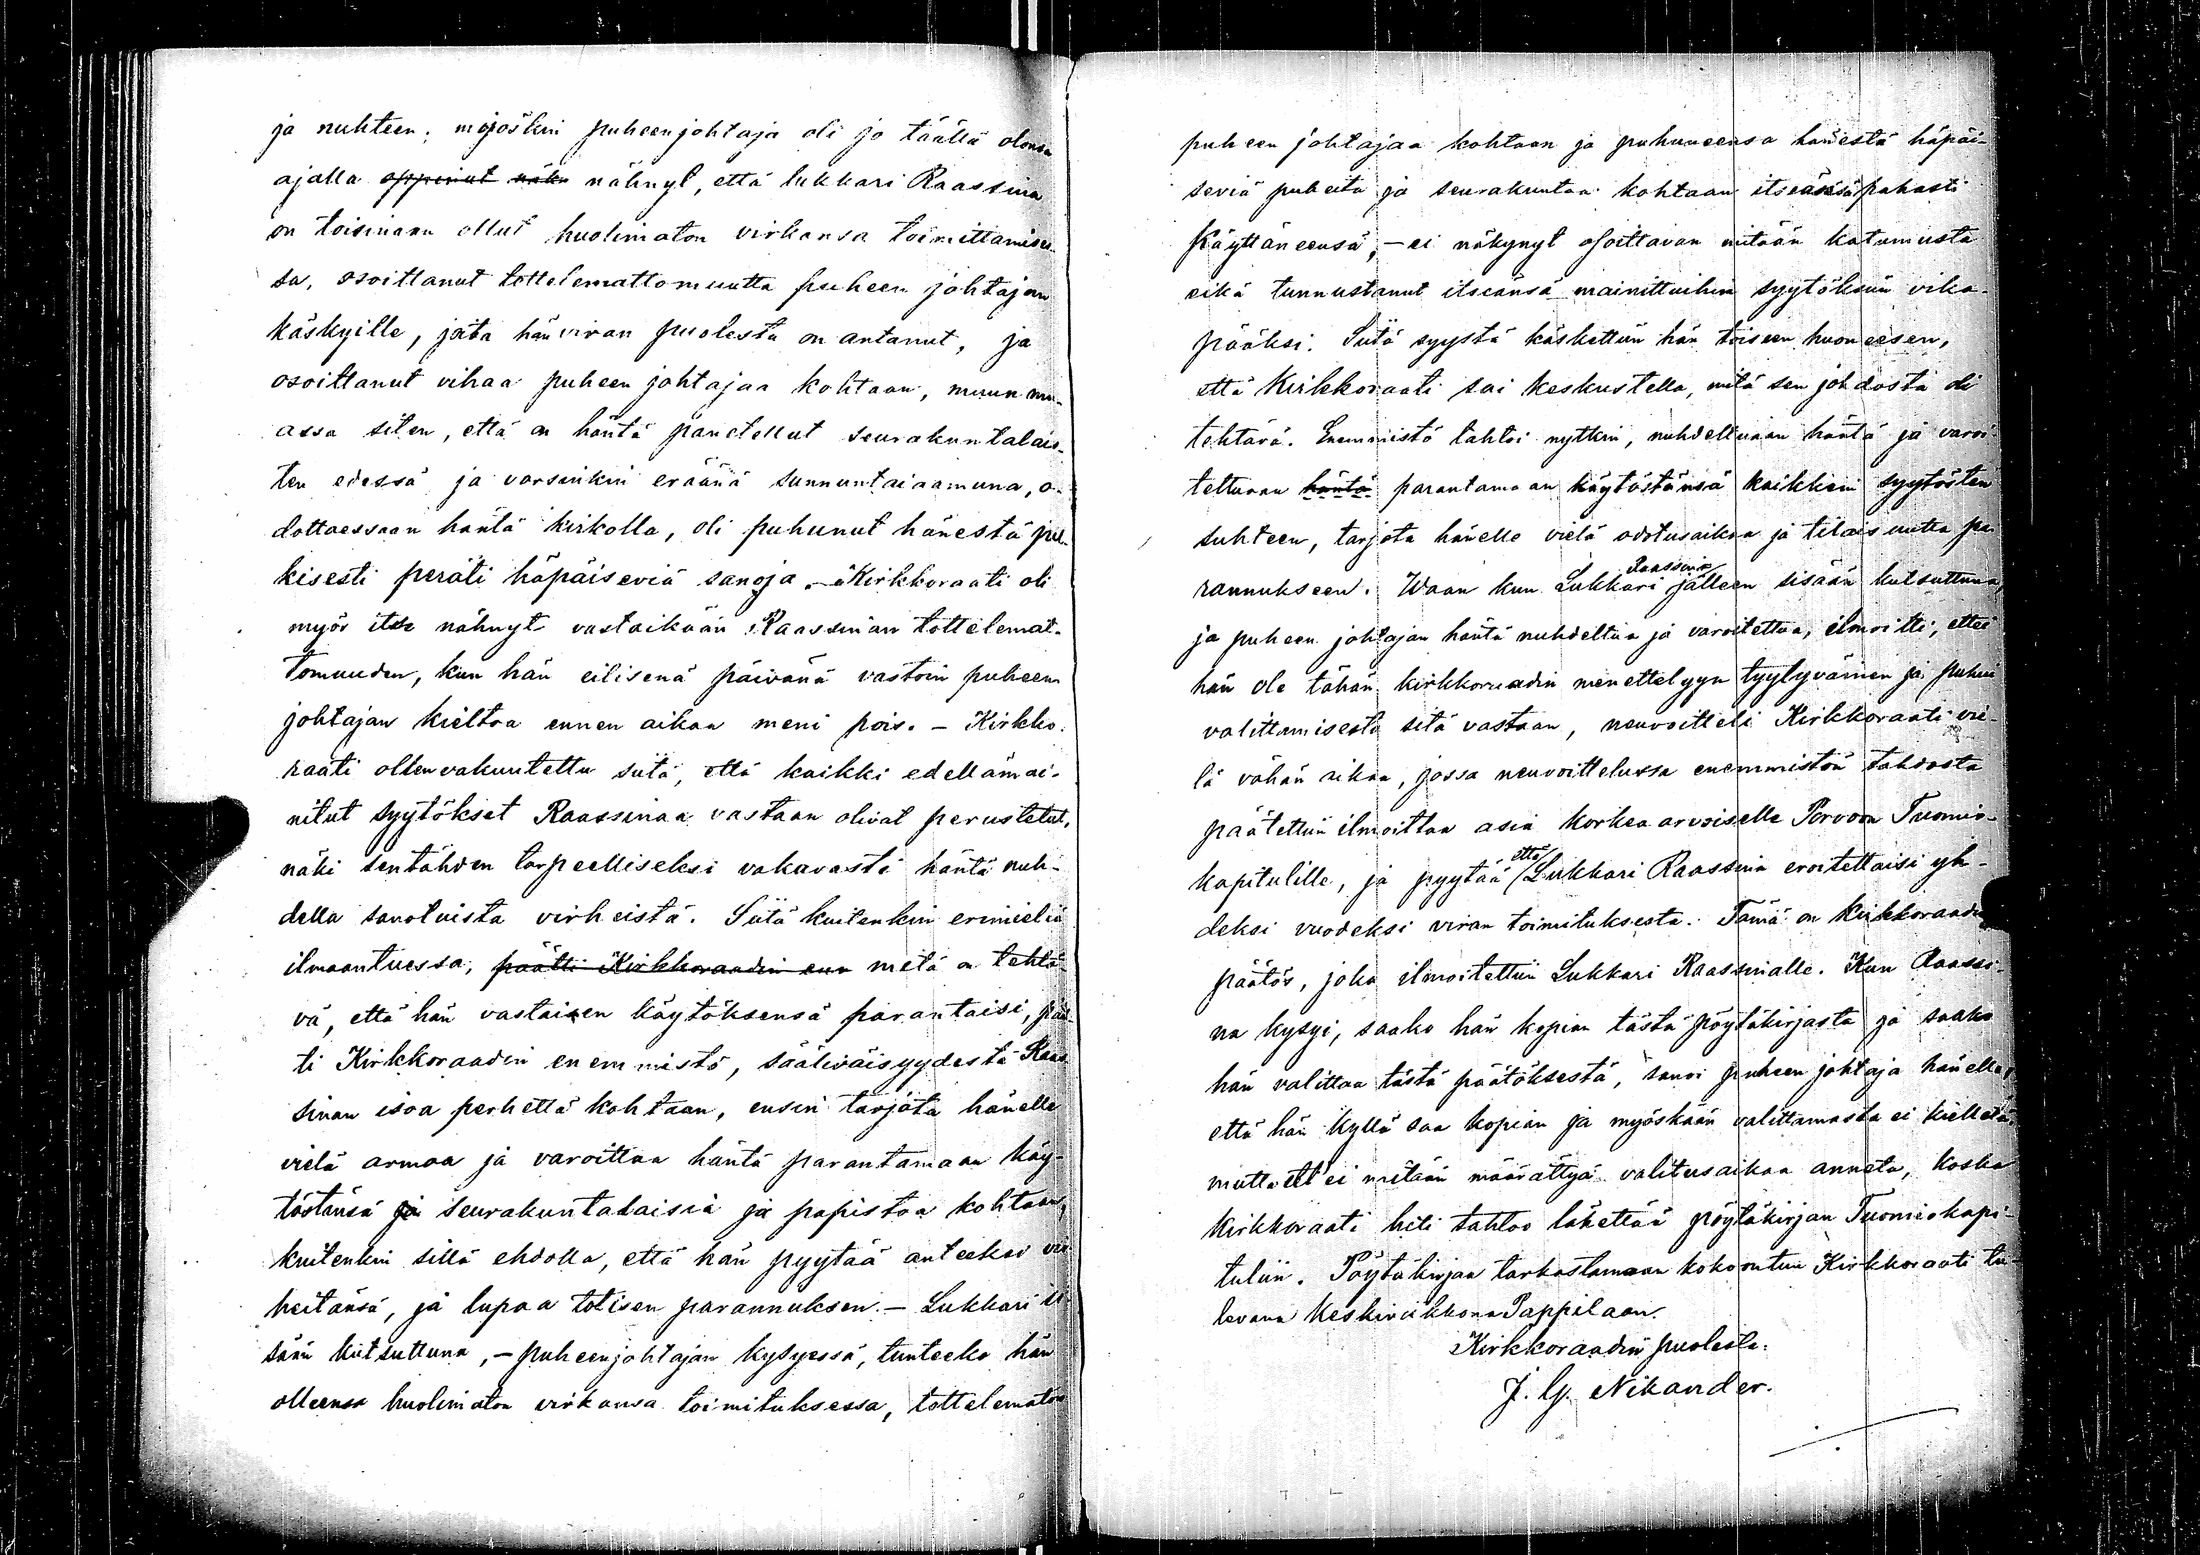 ja nuhteen; myöskin puheenjohtaja oli jo täällä olonsa
ajalla oppinut näke nähnyt, että lukkari Raassina
on toisinaan ollut huolimaton virkansa toimittamises-
sa, osoittanut tottelemattomuutta puheen johtajan
käskyille, joita hän viran puolesta on antanut, ja
osoittanut vihaa puheen johtajaa kohtaan, muun mu-
assa siten, että on häntä panetellut seurakuntalais-
ten edessä ja varsinkin eräänä sunnuntaiaamuna, o-
dottaessaan häntä kirkolla, oli puhunut hänestä jul-
kisesti peräti häpäiseviä sanoja. – Kirkkoraati oli
myös itse nähnyt vastaikään Raassinan tottelemat-
tomuuden, kun hän eilisenä päivänä vastoin puheen
johtajan kieltoa ennen aikaa meni pois. – Kirkko-
raati ollen vakuutettu siitä, että kaikki edellämai-
nitut syytökset Raassinaa vastaan olivat perustetut,
näki sentähden tarpeelliseksi vakavasti häntä nuh-
della sanotuista virheistä. Siitä kuitenkin erimieliä
ilmaantuessa, päätti Kirkkoraadin enn mitä on tehtä-
vä, että hän vastaisen käytöksensä parantaisi, päät-
ti Kirkkoraadin enemmistö, sääliväisyydestä Raas-
sinan isoa perhettä kohtaan, ensin tarjota hänelle
vielä armoa ja varoittaa häntä parantamaan käy-
töstänsä ja seurakuntalaisia ja papistoa kohtaan,
kuitenkin sillä ehdolla, että hän pyytää anteeksi vir-
heitänsä, ja lupaa totisen parannuksen. – Lukkari si-
sään kutsuttuna, – puheenjohtajan kysyessä, tunteeko hän
olleensa huolimaton virkansa toimituksessa, tottelematon
puheen johtajaa kohtaan ja puhuneensa hänestä häpäi-
seviä puheita ja seurakuntaa kohtaan itseänsä pahasti
käyttäneensä, – ei näkynyt osoittavan mitään katumusta
eikä tunnustanut itseänsä mainittuihin syytöksiin vika-
pääksi. Siitä syystä käskettiin hän toiseen huoneesen,
että Kirkkoraati sai keskustella, mitä sen johdosta oli
tehtävä. Enemmistö tahtoi nytkin, nuhdeltuaan häntä ja varoi-
teltuaan häntä parantamaan käytöstänsä kaikkien syytösten
suhteen, tarjota hänelle vielä odotusaikaa ja tilaisuutta pa-
rannukseen. Waan kun Lukkari Raassina jälleen sisään kutsuttuna,
ja puheen johtajan häntä nuhdeltua ja varoitettua, ilmoitti, ettei
hän ole tähän kirkkoraadin menettelyyn tyytyväinen ja puhui
valittamisesta sitä vastaan, neuvoitteli Kirkkoraati vie-
lä vähän aikaa, jossa neuvoittelussa enemmistön tahdosta
päätettiin ilmoittaa asia korkea arvoiselle Porvoon Tuomio-
kapitulille, ja pyytää että Lukkari Raassina eroitettaisi yh-
deksi vuodeksi viran toimituksesta. Tämä on kirkkoraadin
päätös, joka ilmoitettiin Lukkari Raassinalle. Kun Raassi-
na kysyi, saako hän kopian tästä pöytäkirjasta ja saako
hän valittaa tästä päätöksestä, sanoi puheen johtaja hänelle,
että hän kyllä saa kopian ja myöskään valittamasta ei kielletä,
mutta ett'ei mitään määrättyä valitusaikaa anneta, koska
Kirkkoraati heti tahtoo lähettää pöytäkirjan Tuomiokapi-
tuliin. Pöytäkirjaa tarkastamaan kokoontuu Kirkkoraati tu-
levana Keskiviikkona Pappilaan.
Kirkkoraadin puolesta:
J. G. Nikander.